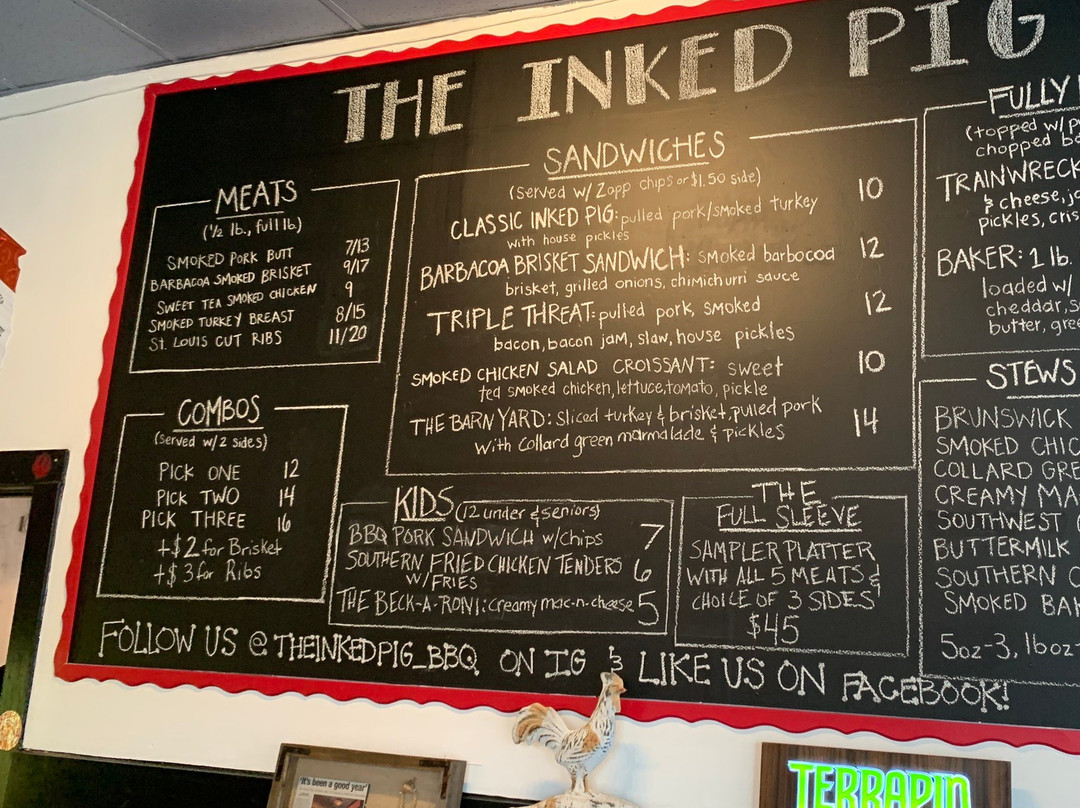 THE INKED PIG
MEATS
(½ lb., full lb.)
SMOKED PORK BUTT 7/13
BARBACOA SMOKED BRISKET 9/17
SWEET TEA SMOKED CHICKEN 9
SMOKED TURKEY BREAST 8/15
ST. LOUIS CUT RIBS 11/20
COMBOS
(served w/2 sides)
PICK ONE 12
PICK TWO 14
PICK THREE 16
+$2 for Brisket
+$3 for Ribs
SANDWICHES
(served w/ Zapp chips or $1.50 side)
CLASSIC INKED PIG: pulled pork/smoked turkey 10
with house pickles
BARBACOA BRISKET SANDWICH: smoked barbocoa 12
brisket, grilled onions, chimichurri sauce
TRIPLE THREAT: pulled pork, smoked 12
bacon, bacon jam, slaw, house pickles
SMOKED CHICKEN SALAD CROISSANT: sweet 10
tea smoked chicken, lettuce, tomato, pickle
THE BARN YARD: sliced turkey & brisket, pulled pork 14
with collard green marmalade & pickles
KIDS (12 under & seniors)
BBQ PORK SANDWICH w/chips 7
SOUTHERN FRIED CHICKEN TENDERS 6
W/FRIES
THE BECK-A-RONI: creamy mac-n-cheese 5
THE
FULL SLEEVE
SAMPLER PLATTER
WITH ALL 5 MEATS &
CHOICE OF 3 SIDES
$45
FULLY
(topped w/
chopped
TRAINWRECK
& cheese,
pickles,
BAKER: 1 lb.
loaded w/
cheddar,
butter,
STEWS
BRUNSWICK
SMOKED
COLLARD
CREAMY
SOUTHWEST
BUTTERMILK
SOUTHERN
SMOKED
5oz-3, 1boz-
FOLLOW US @THEINKEDPIG_BBQ ON IG & LIKE US ON FACEBOOK!
"It's been a good year"
TERRAPIN